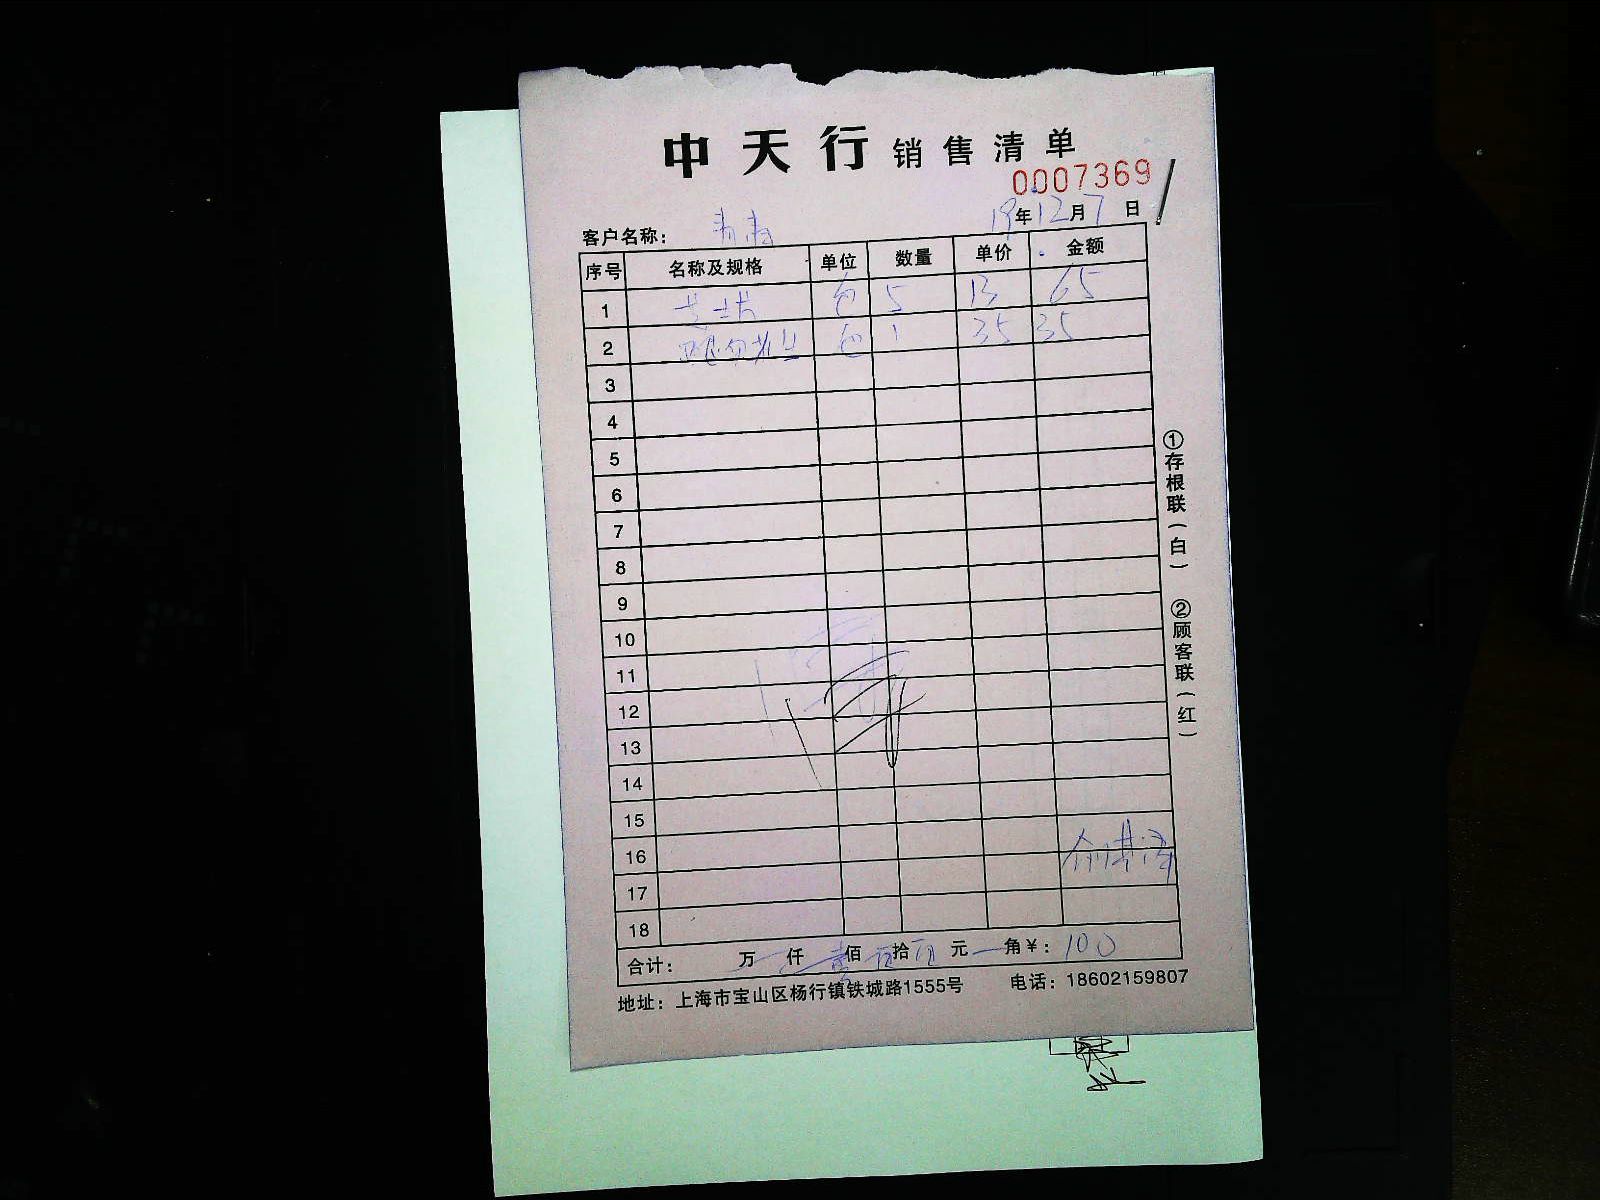 中天行销售清单
0007369
客户名称： 19年12月7日
序号 名称及规格 单位 数量 单价 金额
1 包 5 13 65
2 包 1 35 35
3
4
5
6
7
8
9
10
11
12
13
14
15
16
17
18
合计： 万 仟 壹佰 拾 元 角￥：100
地址：上海市宝山区杨行镇铁城路1555号 电话：18602159807
①存根联（白） ②顾客联（红）